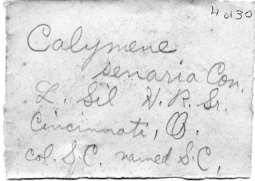 4030
Calymene
senaria Con.
L. Sil H. R. Gr.
Cincinnati, O.
col. S.C. named S.C.